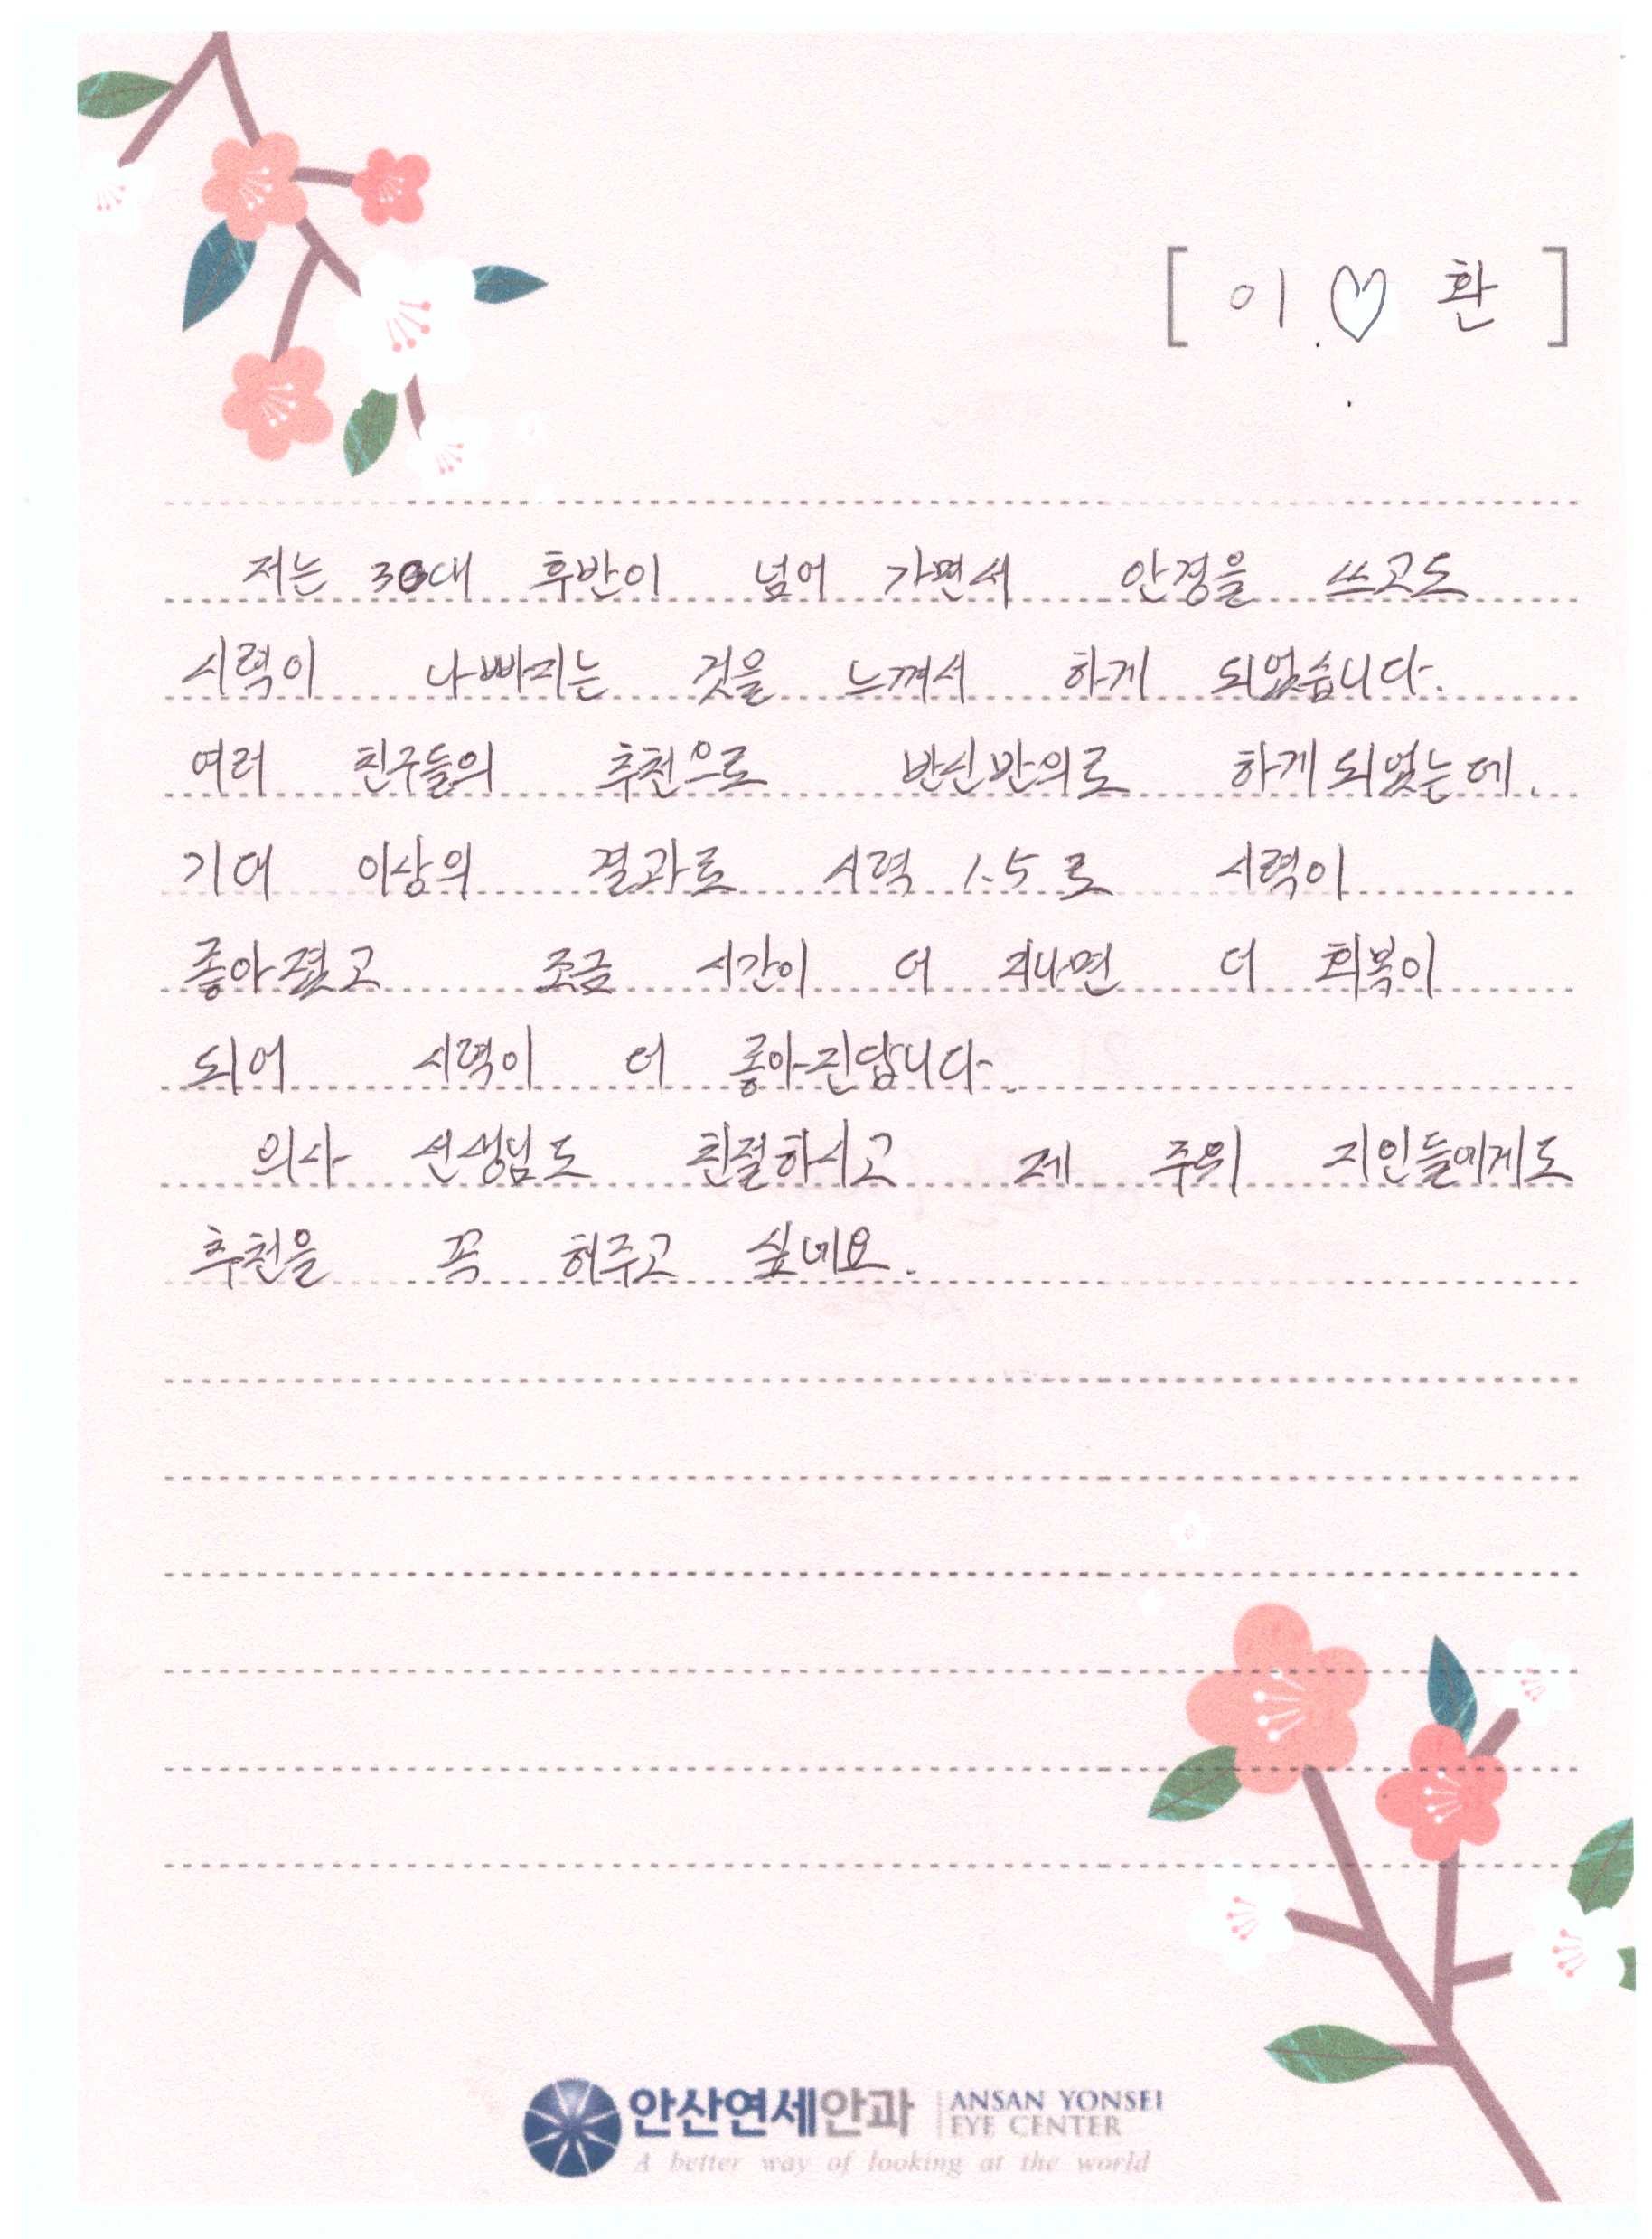 [ 이 ♡ 환 ]
저는 30대 후반이 넘어 가면서 안경을 쓰고도
시력이 나빠지는 것을 느껴서 하게 되었습니다.
여러 친구들의 추천으로 반신반의로 하게 되었는데.
기대 이상의 결과로 시력 1.5로 시력이
좋아졌고 조금 시간이 더 지나면 더 회복이
되어 시력이 더 좋아진답니다.
의사 선생님도 친절하시고 제 주위 지인들에게도
추천을 꼭 해주고 싶네요.
안산연세안과 ANSAN YONSEI
EYE CENTER
A better way of looking at the world